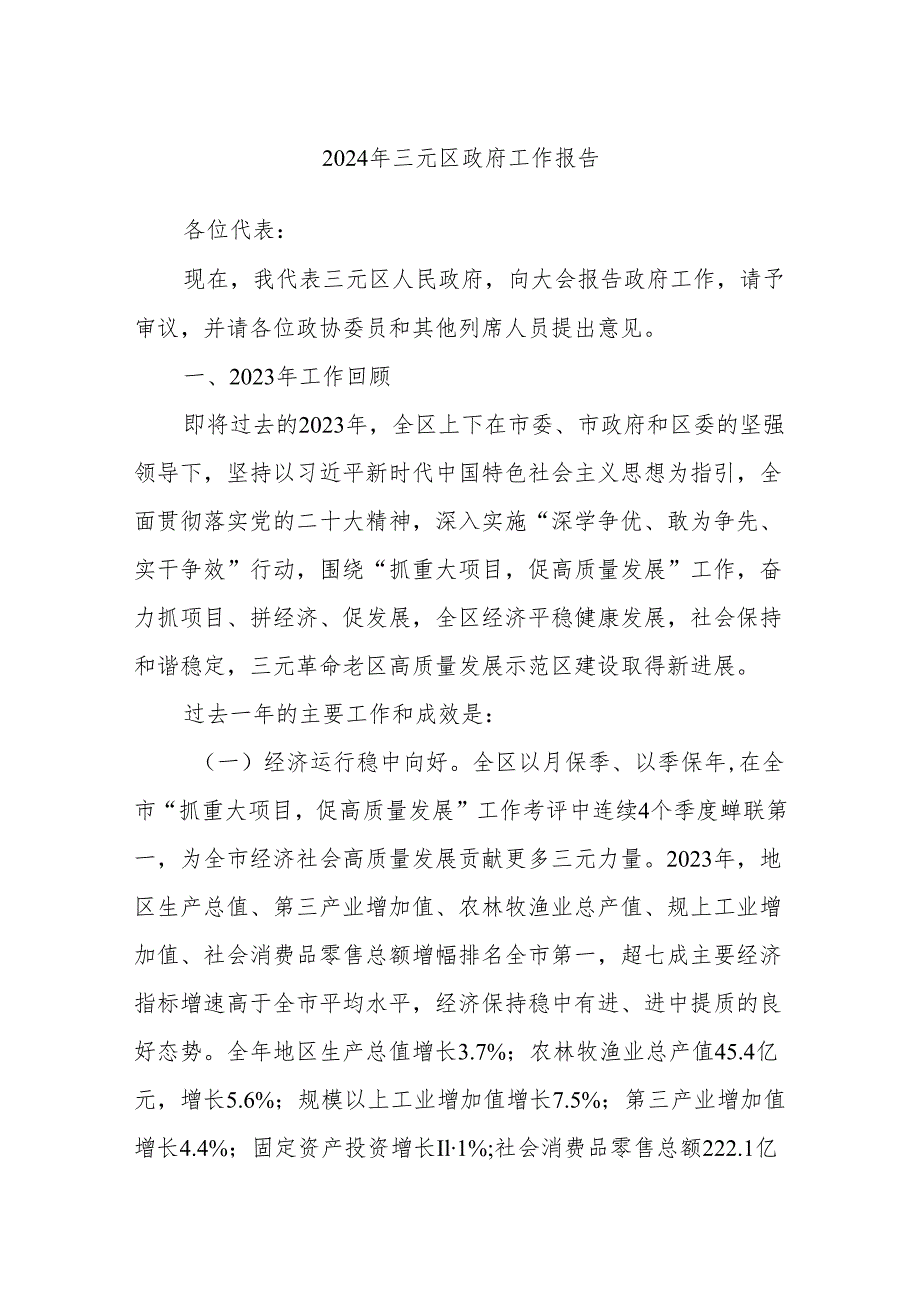 2024年三元区政府工作报告
各位代表：
现在，我代表三元区人民政府，向大会报告政府工作，请予
审议，并请各位政协委员和其他列席人员提出意见。
一、2023年工作回顾
即将过去的2023年，全区上下在市委、市政府和区委的坚强
领导下，坚持以习近平新时代中国特色社会主义思想为指引，全
面贯彻落实党的二十大精神，深入实施“深学争优、敢为争先、
实干争效”行动，围绕“抓重大项目，促高质量发展”工作，奋
力抓项目、拼经济、促发展，全区经济平稳健康发展，社会保持
和谐稳定，三元革命老区高质量发展示范区建设取得新进展。
过去一年的主要工作和成效是：
（一）经济运行稳中向好。全区以月保季、以季保年,在全
市“抓重大项目，促高质量发展”工作考评中连续4个季度蝉联第
一，为全市经济社会高质量发展贡献更多三元力量。2023年，地
区生产总值、第三产业增加值、农林牧渔业总产值、规上工业增
加值、社会消费品零售总额增幅排名全市第一，超七成主要经济
指标增速高于全市平均水平，经济保持稳中有进、进中提质的良
好态势。全年地区生产总值增长3.7%；农林牧渔业总产值45.4亿
元，增长5.6%；规模以上工业增加值增长7.5%；第三产业增加值
增长4.4%；固定资产投资增长Il·1%;社会消费品零售总额222.1亿